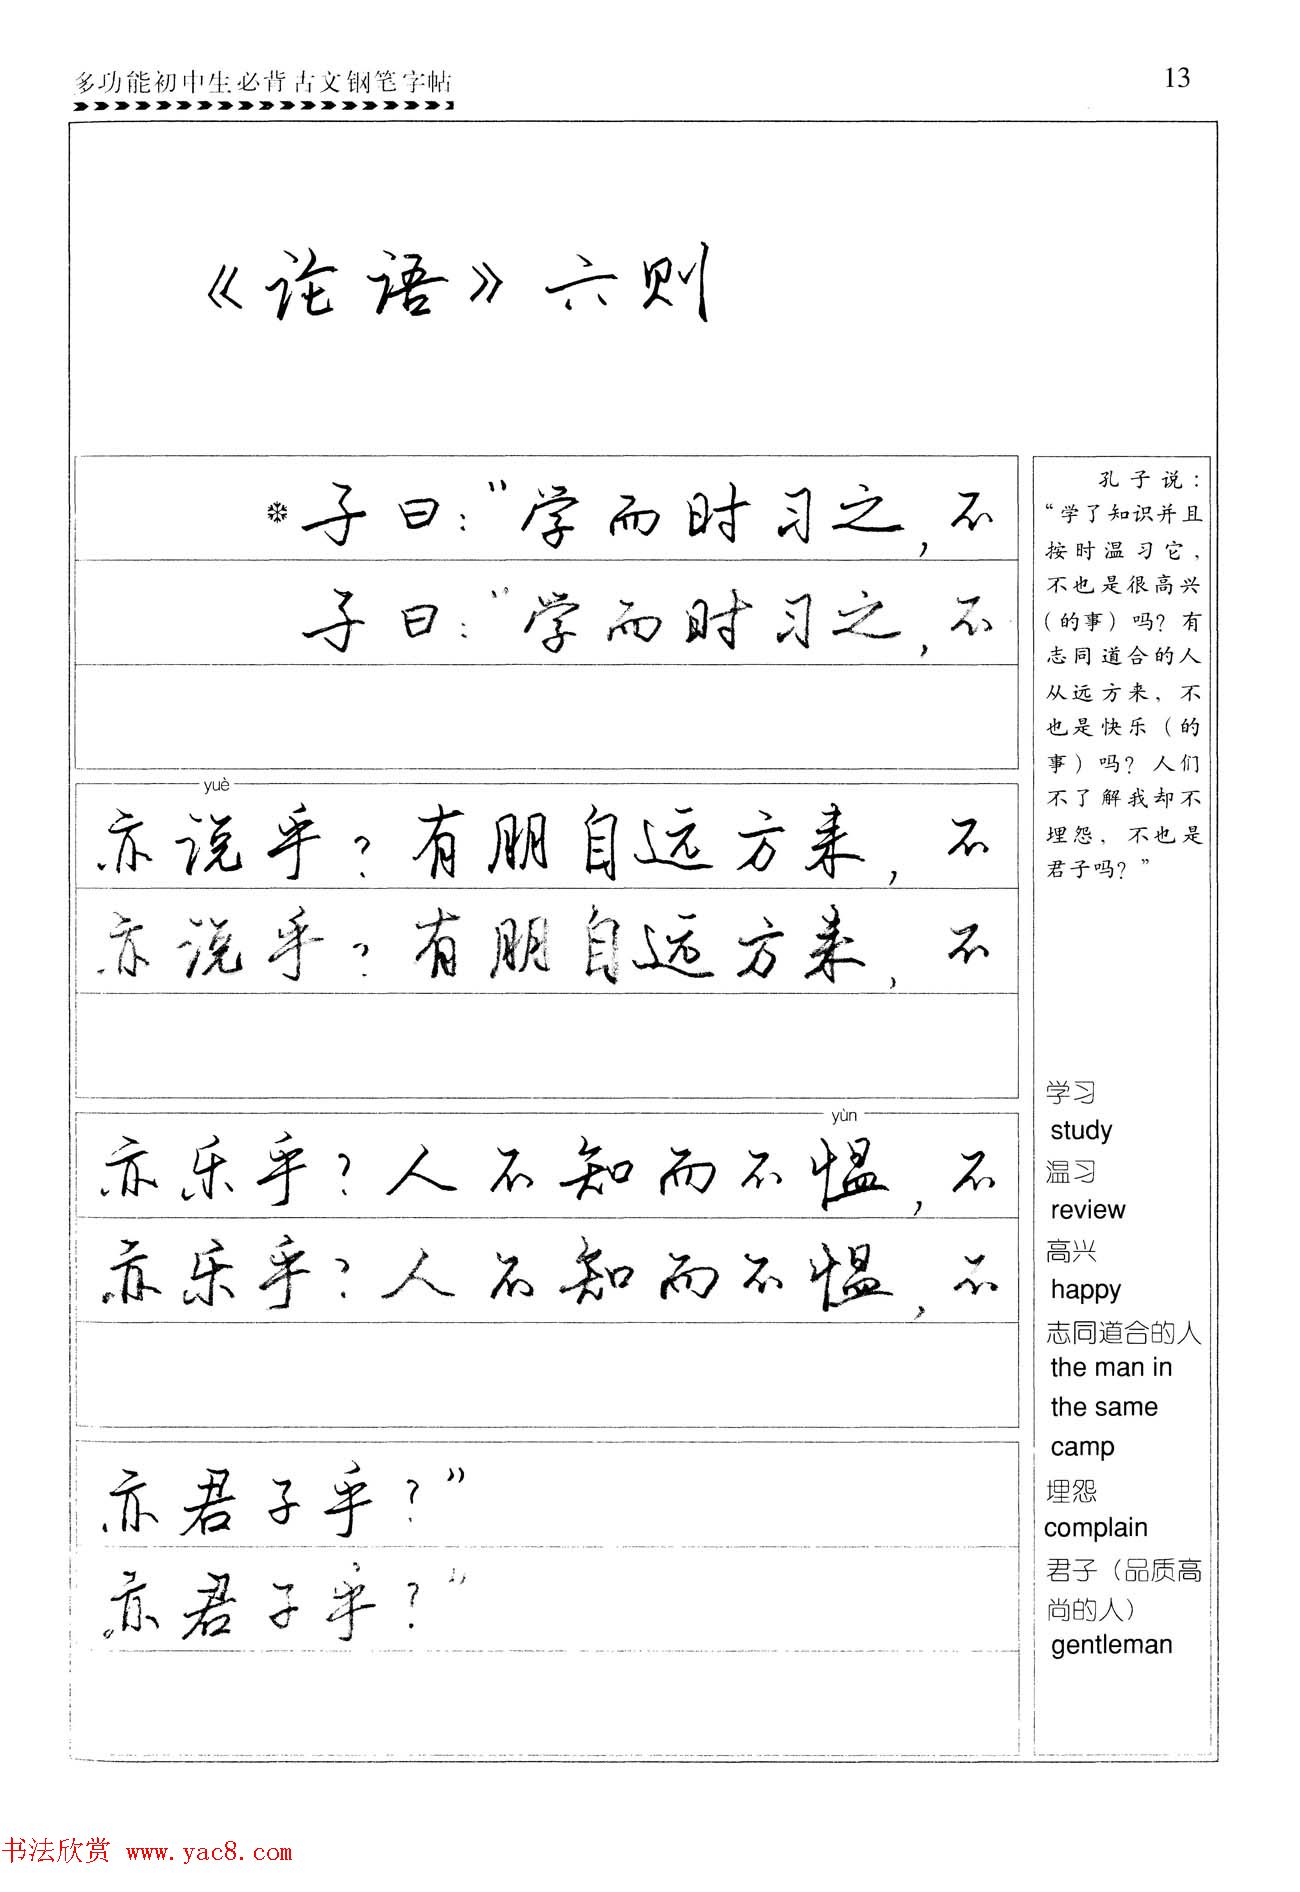 多功能初中生必背古文钢笔字帖
13
《论语》六则
子曰:“学而时习之,不
子曰:“学而时习之,不
yuè
亦说乎?有朋自远方来,不
亦说乎?有朋自远方来,不
yùn
亦乐乎?人不知而不愠,不
亦乐乎?人不知而不愠,不
亦君子乎?”
亦君子乎?”
孔子说:
“学了知识并且
按时温习它,
不也是很高兴
(的事)吗?有
志同道合的人
从远方来,不
也是快乐(的
事)吗?人们
不了解我却不
埋怨,不也是
君子吗?”
学习
study
温习
review
高兴
happy
志同道合的人
the man in
the same
camp
埋怨
complain
君子(品质高
尚的人)
gentleman
书法欣赏 www.yac8.com